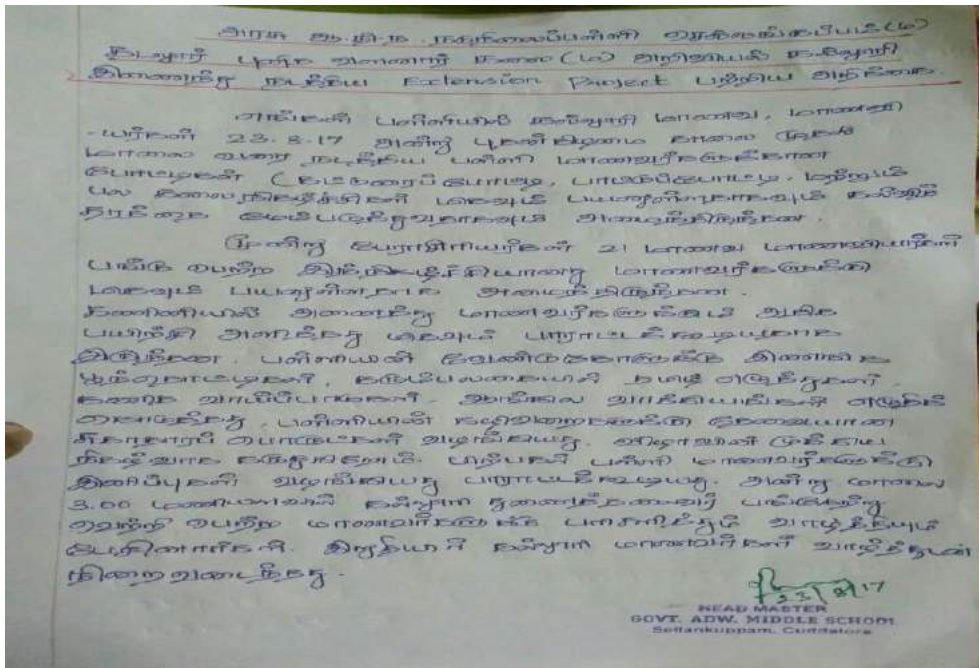 அரசு ஆ.தி.ந. நடுநிலைப்பள்ளி செல்லங்குப்பம் (ம)
கடலூர் புனித வளனார் கலை (ம) அறிவியல் கல்லூரி
இணைந்து நடத்திய Extension Project பற்றிய அறிக்கை.
எங்கள் பள்ளியில் கல்லூரி மாணவ, மாணவி
-யர்கள் 23.8.17 அன்று புதன்கிழமை காலை முதல்
மாலை வரை நடத்திய பள்ளி மாணவர்களுக்கான
போட்டிகள் (கட்டுரைப்போட்டி, பாட்டுப்போட்டி, மற்றும்
பல கலைநிகழ்ச்சிகள் மிகவும் பயனுள்ளதாகவும் கல்வித்
தரத்தை மேம்படுத்துவதாகவும் அமைந்திருந்தன.
மூன்று பேராசிரியர்கள் 21 மாணவ மாணவியர்கள்
பங்கு பெற்ற இந்நிகழ்ச்சியானது மாணவர்களுக்கு
மிகவும் பயனுள்ளதாக அமைந்திருந்தன.
கணினியில் அனைத்து மாணவர்களுக்கும்
பயிற்சி அளித்தது மிகவும் பாராட்டக்கூடியதாக
இருந்தன. பள்ளியின் வேண்டுகோளுக்கு இணங்க
பூந்தொட்டிகள், கரும்பலகையில் தமிழ் எழுத்துகள்
கணித வாய்ப்பாடுகள். ஆங்கில வாக்கியங்கள் எழுதிக்
கொடுத்தது, பள்ளியின் கழிவறைகளுக்கு தேவையான
சுகாதாரப் பொருட்கள் வழங்கியது. விழாவின் முக்கிய
நிகழ்வாக கருதுகிறோம். பிற்பகல் பள்ளி மாணவர்களுக்கு
இனிப்புகள் வழங்கியது பாராட்டக்கூடியது. அன்று மாலை
3.00 மணியளவில் கல்லூரி பங்கேற்று
வெற்றி பெற்ற மாணவர்களுக்கு பரிசளித்தும் வாழ்த்தியும்
பேசினார்கள். இறுதியாக கல்லூரி மாணவர்கள் வாழ்த்துடன்
நிறைவடைந்தது.
23/8/17
HEAD MASTER
GOVT. ADW. MIDDLE SCHOOL
Sellankuppam, Cuddalore